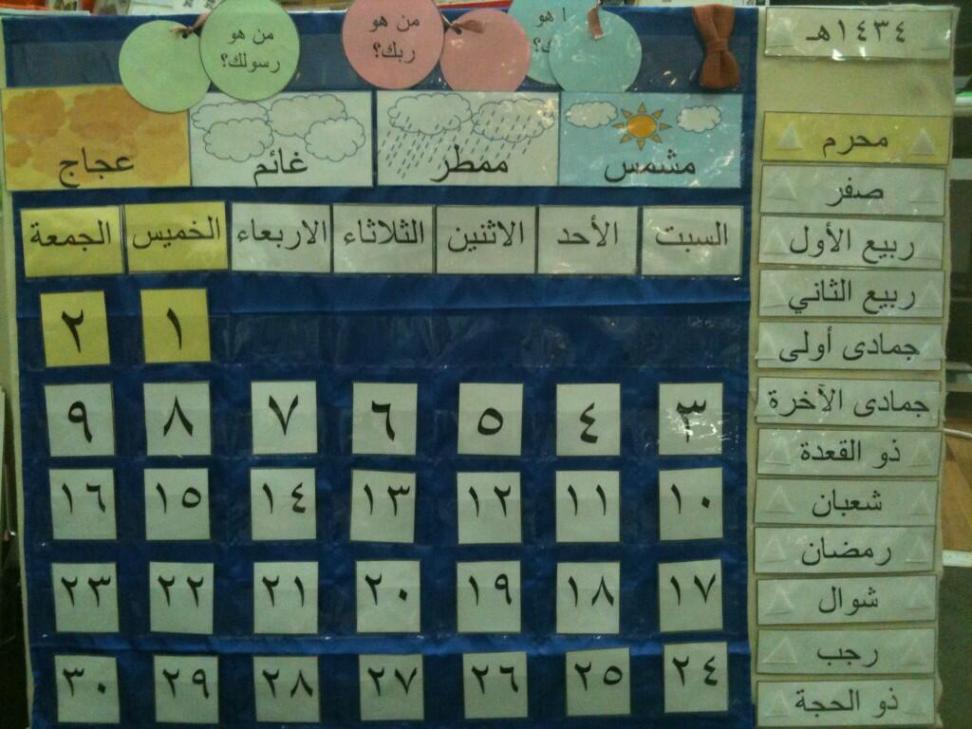 من هو
رسولك؟
من هو
ربك؟
١٤٣٤هـ
مشمس ممطر غائم عجاج
السبت الأحد الاثنين الثلاثاء الاربعاء الخميس الجمعة
١ ٢
٣ ٤ ٥ ٦ ٧ ٨ ٩
١٠ ١١ ١٢ ١٣ ١٤ ١٥ ١٦
١٧ ١٨ ١٩ ٢٠ ٢١ ٢٢ ٢٣
٢٤ ٢٥ ٢٦ ٢٧ ٢٨ ٢٩ ٣٠
محرم
صفر
ربيع الأول
ربيع الثاني
جمادى أولى
جمادى الآخرة
ذو القعدة
شعبان
رمضان
شوال
رجب
ذو الحجة